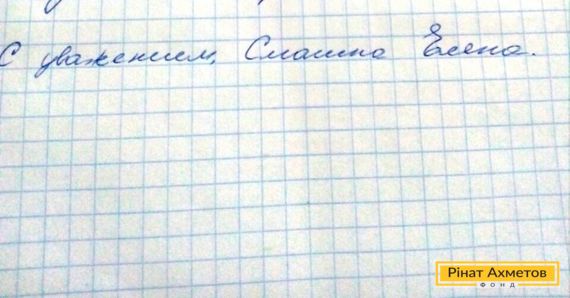 С уважением, Слашна Елена.
Рінат Ахметов
ФОНД